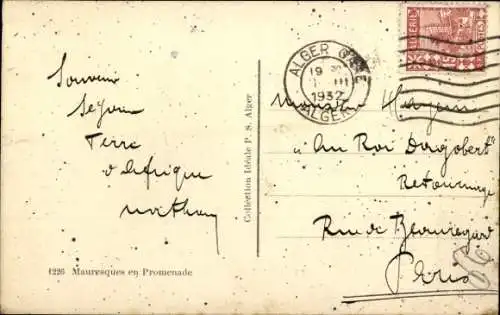 Souvenir
Terre
d'Afrique
1226 Mauresques en Promenade
Collection Idéale P. S. Alger
ALGER GARE
19
III
1932
ALGER
ALGÉRIE
POSTES
Monsieur
"Au Roi Dagobert"
Rue de Beauregard
Paris